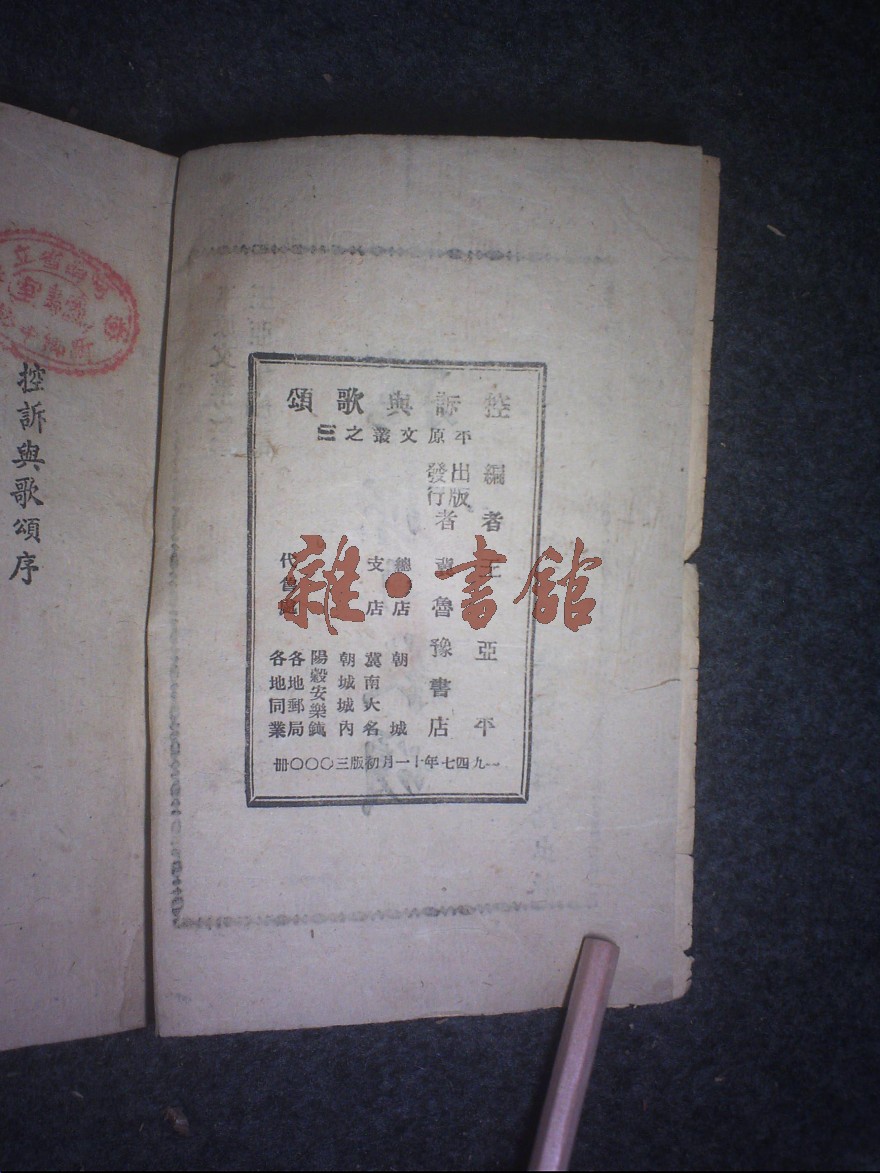 控訴與歌頌
平原文叢之三
編者 王亞平
出版發行者 冀魯豫書店
總店 朝城
支店 冀南大名
朝城城內
陽穀安樂鎮
代售處 各地郵局
各地同業
一九四七年十一月初版三〇〇〇冊
控訴與歌頌序
雜·書館